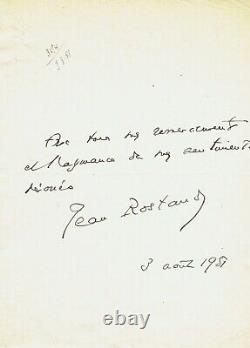 Avec tous mes remerciements
et l'assurance de mes sentiments
dévoués
Jean Rostand
3 août 1951
ebay